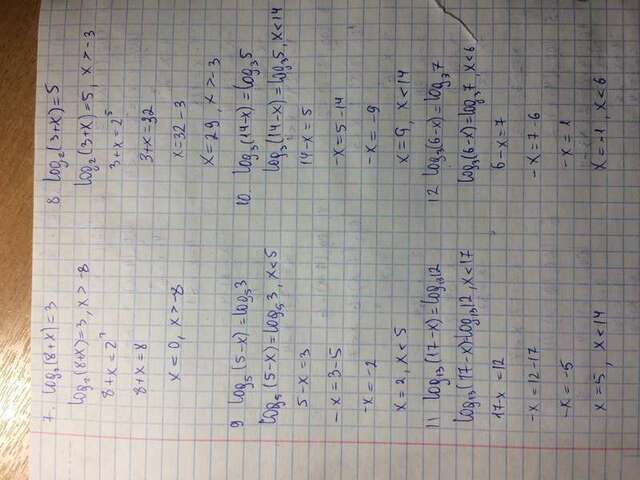 7. log₂(8+x)=3
log₂(8+x)=3, x>-8
8+x=2³
8+x=8
x=0, x>-8
8 log₂(3+x)=5
log₂(3+x)=5, x>-3
3+x=2⁵
3+x=32
x=32-3
x=29, x>-3
9 log₅(5-x)=log₅3
log₅(5-x)=log₅3, x<5
5-x=3
-x=3-5
-x=-2
x=2, x<5
10. log₃(14-x)=log₃5
log₃(14-x)=log₃5, x<14
14-x=5
-x=5-14
-x=-9
x=9, x<14
11 log₁₃(17-x)=log₁₃12
log₁₃(17-x)=log₁₃12, x<17
17-x=12
-x=12-17
-x=-5
x=5, x<14
12 log₃(6-x)=log₃7
log₃(6-x)=log₃7, x<6
6-x=7
-x=7-6
-x=1
x=-1, x<6